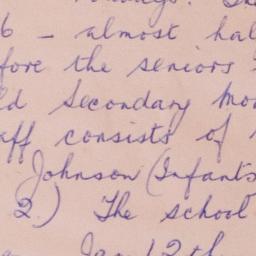 6 - almost hal
fore the seniors
ld Secondary Mo
aff consists of
Johnson (Infants
2.) The school
Jan 12th